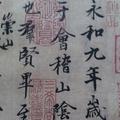 永和九年歲
于會稽山陰
也群賢畢至
崇山